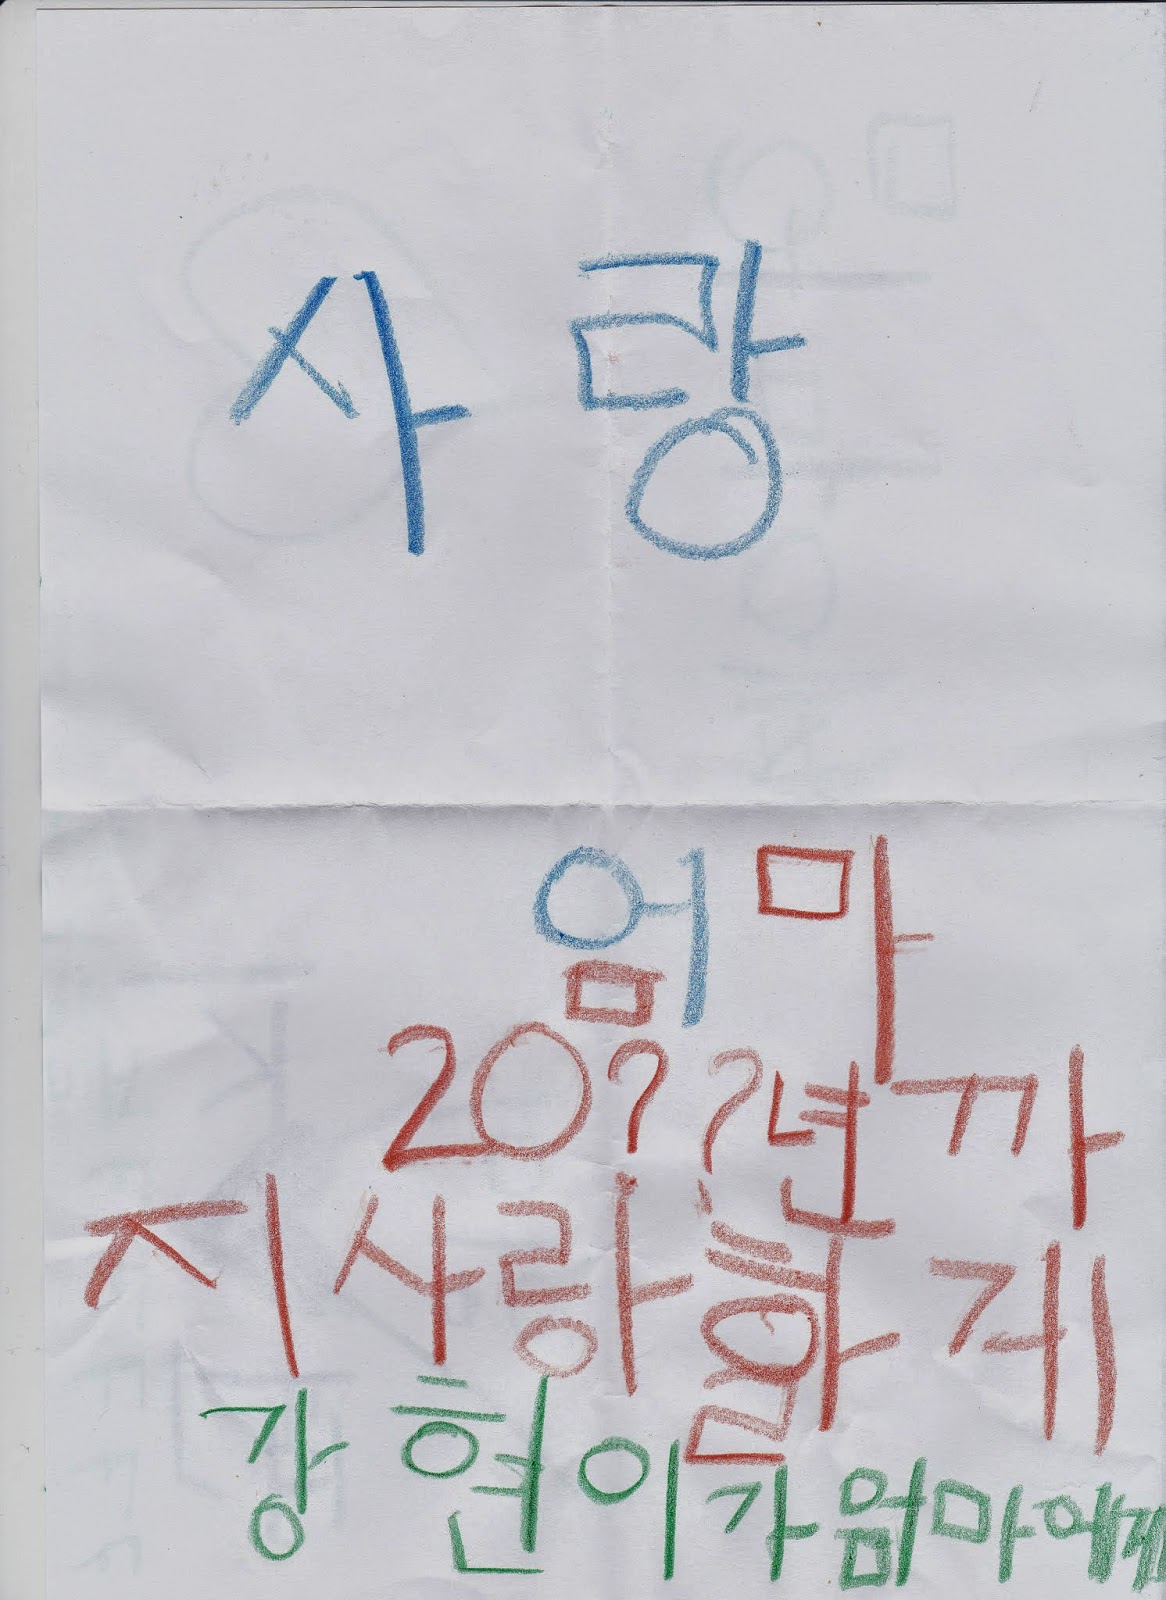 사랑
엄마
20??년까
지사랑할게
강현이가엄마에게